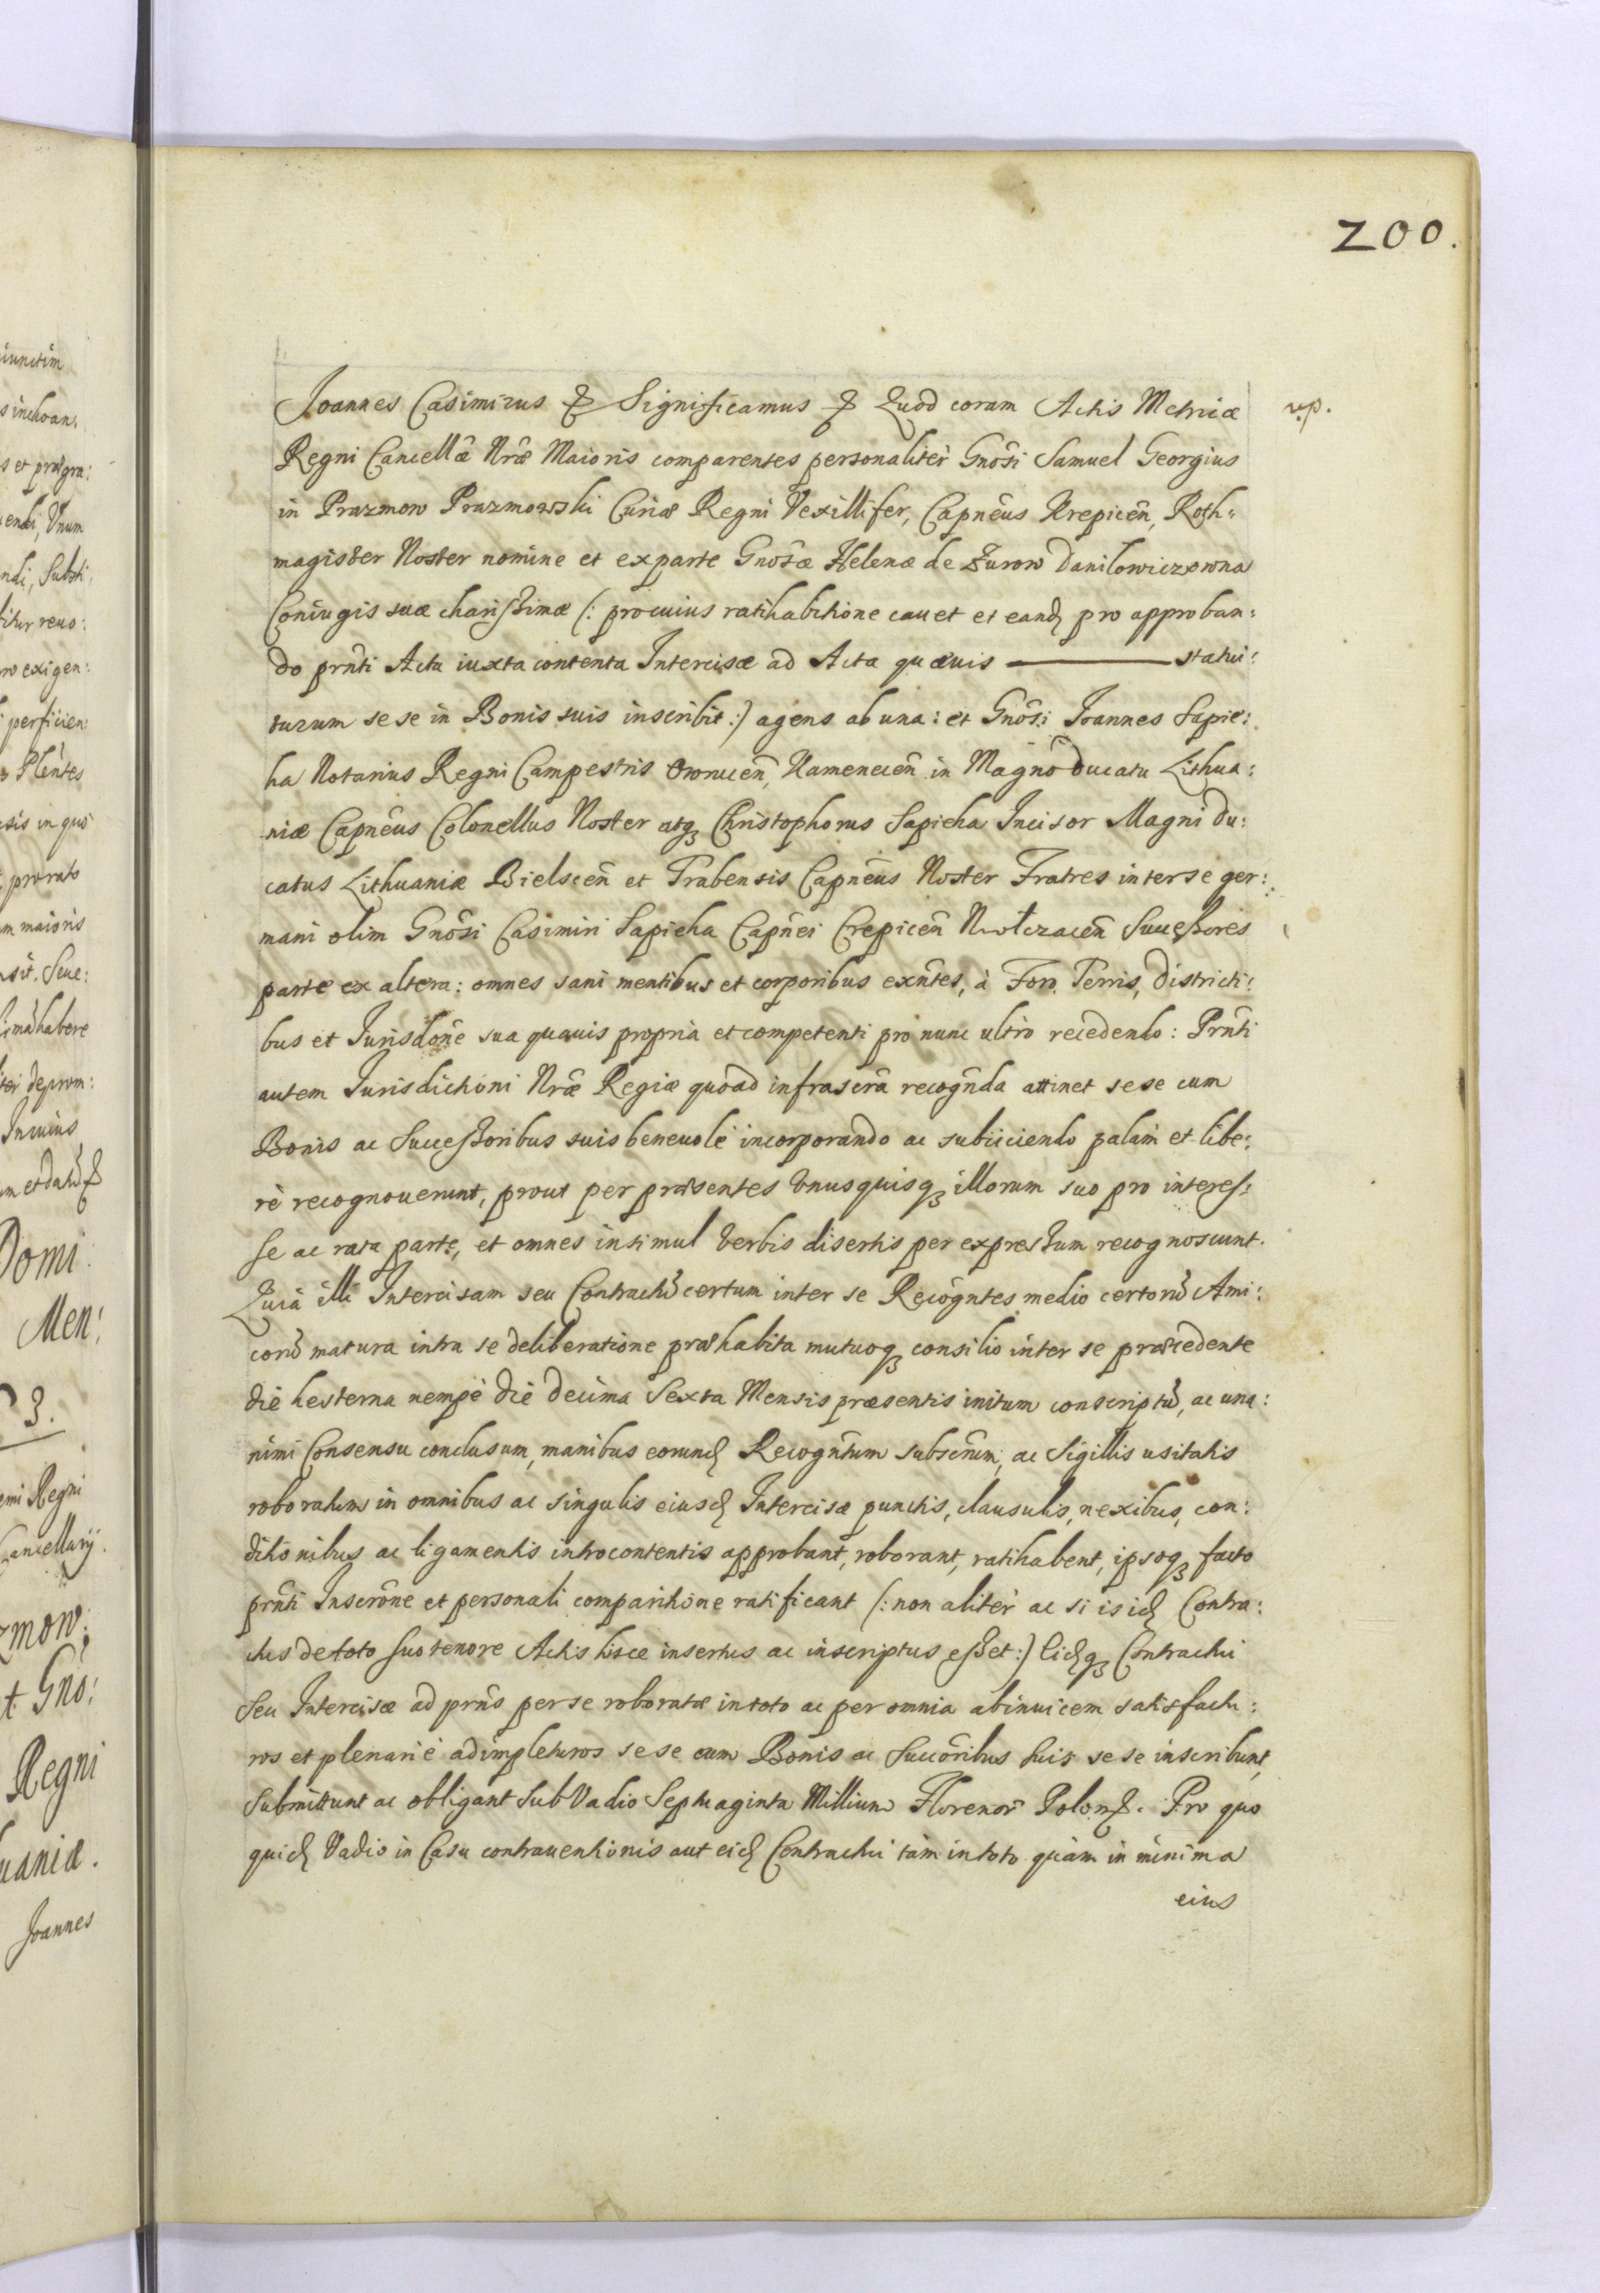 200.
Joannes Casimirus & Significamus & Quod coram Actis Metricæ
rp.
Regni Cancellæ Nræ Maioris comparentes personaliter Gnosi Samuel Georgius
in Prazmow Prazmowski Curiæ Regni Vexillifer, Capneus Krepicen, Roth=
magister Noster nomine et ex parte Gnosæ Helenæ de Zurow Danilowiczowna
Coniugis suæ charissimæ (: pro cuius ratihabitione cauet et eandq pro approban:
do prnti Actu iuxta contenta Intercisæ ad Acta quævis ——— statui:
turum sese in Bonis suis inscribit :) agens ab una: et Gnosi Joannes Sapie:
ha Notarius Regni Campestris Kamenecen in Magno Ducatu Lithua:
niæ Capneus Colonellus Noster atq Christophorus Sapieha Incisor Magni Du:
catus Lithuaniæ Bielscen et Trabensis Capneus Noster Fratres inter se ger:
mani olim Gnosi Casimiri Sapieha Capnei Crepicen Successores
parte ex altera: omnes sani mentibus et corporibus exntes, à Foro, Terris, Districti:
bus et Jurisdone sua quauis propria et competenti pro nunc ultro recedendo: Prnti
autem Jurisdictioni Nræ Regiæ quoad infrascra recognda attinet sese cum
Bonis ac Successoribus suis beneuolè incorporando ac subiiciendo palam et libe:
rè recognouerunt, prout per præsentes Vnusquisq illorum suo pro interes:
se ac rata parte, et omnes insimul Verbis disertis per expressum recognoscunt.
Quia illi Intercisam seu Contractu certum inter se Recogntes medio certoru Ami:
coru matura intra se deliberatione præhabita mutuoq consilio inter se præcedente
die hesterna nempè die decima Sexta Mensis præsentis initum conscriptu, ac una:
nimi Consensu conclusum, manibus eorundq Recogntum subscrum, ac Sigillis usitatis
roboratum in omnibus ac singulis eiusdq Intercisæ punctis, clausulis, nexibus, con:
ditionibus ac ligamentis introcontentis approbant, roborant, ratihabent, ipsoq facto
prnti Inscrone et personali comparitione ratificant (: non aliter ac si isidq Contra:
ctus de toto suo tenore Actis hisce insertus ac inscriptus esset :) Eidq Contractui
seu Intercisæ ad prns per se roboratæ in toto ac per omnia abinuicem satisfactu:
ros et plenariè adimpleturos sese cum Bonis ac Succoribus suis sese inscribunt,
submittunt ac obligant sub Vadio Septuaginta Millium Florenor Polon. Pro quo
quidq Vadio in Casu contrauentionis aut eidq Contractui tam in toto quàm in minima
eius
iunctim
s inchoan.
s et prægra:
uendi, Vnum
ndi, Substi
titur reuo:
ro exigen:
perficien:
Plentes
sis in quo
prorato
m maioris
sit. Seue:
sima habere
deprom:
In cuius
m et datu &
Domi
Men:
3.
emi Regni
Cancellarij.
zmow;
t Gno:
Regni
uaniæ.
Joannes